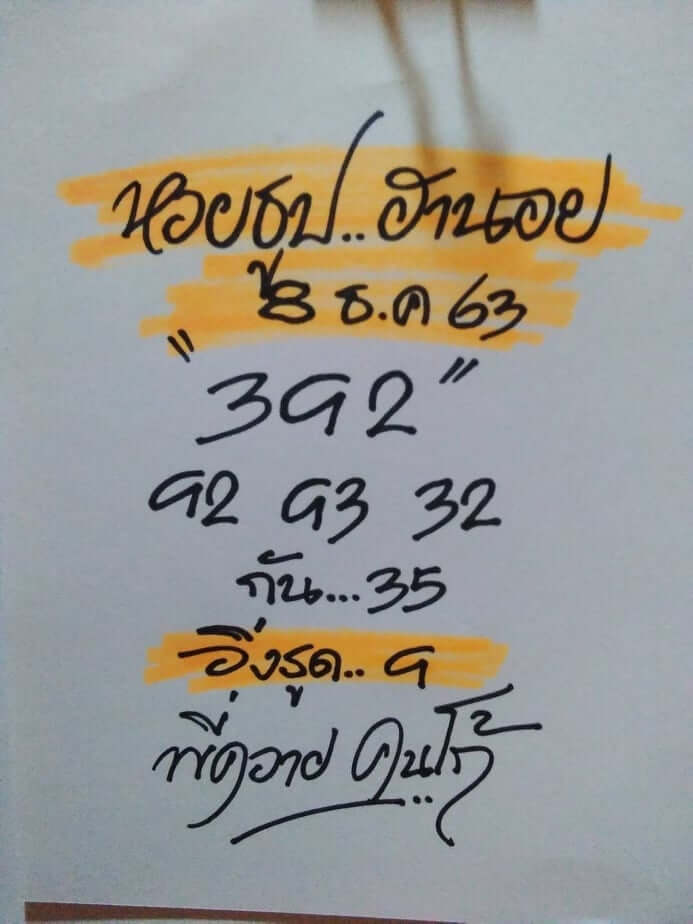 หวยธูป..ฮานอย
8 ธ.ค 63
"392"
92 93 32
กัน...35
วิ่งรูด.. 9
พี่ควาย คนโก้